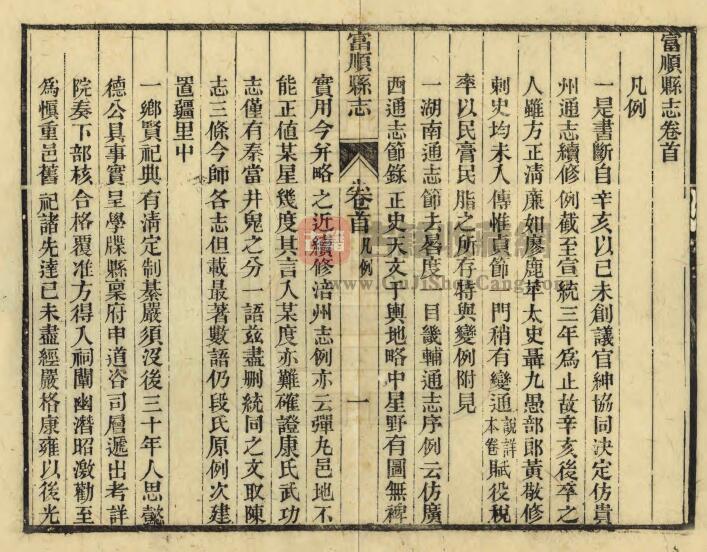 富順縣志卷首
凡例
一是書斷自辛亥以已未創議官紳協同決定仿貴
州通志續修例截至宣統三年爲止故辛亥後卒之
人雖方正淸廉如廖鹿苹太史聶九愚部郎黃敬修
刺史均未入傳惟貞節一門稍有變通説詳本卷賦役稅
率以民膏民脂之所存特與變例附見
一湖南通志節去晷度一目畿輔通志序例云仿廣
西通志節錄正史天文于輿地略中星野有圖無裨
富順縣志
卷首
凡例
一
實用今幷略之近續修涪州志例亦云彈丸邑地不
能正値某星幾度其言入某度亦難確證康氏武功
志僅有秦當井鬼之分一語茲盡删統同之文取陳
志三條今師各志但載最著數語仍段氏原例次建
置疆里中
一鄉賢祀典有淸定制綦嚴須沒後三十年人思懿
德公具事實呈學牒縣稟府申道咨司層遞出考詳
院奏下部核合格覆准方得入祠闡幽潛昭激勸至
爲愼重邑舊祀諸先達已未盡經嚴格康雍以後光
www.GuJiShuCang.com